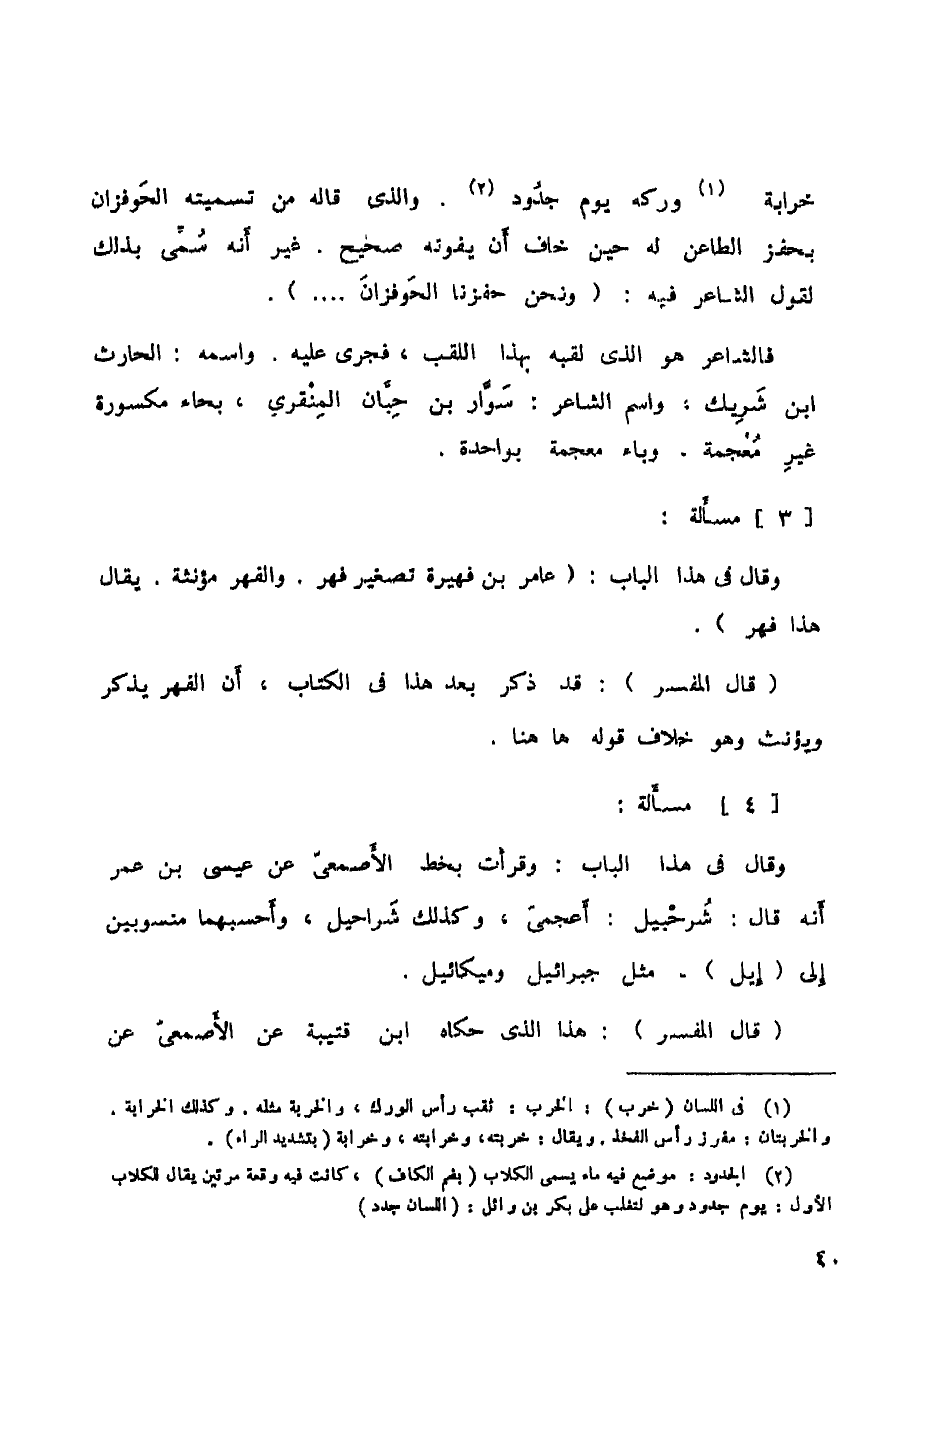 خرابة (١) وركه يوم جدُود (٢) . والذى قاله من تسميته الحَوفزان
بحفز الطاعن له حين خاف أَن يفوته صحيح . غير أَنه سُمِّى بذلك
لقول الشاعر فيه : ( ونحن حفزنا الحَوفزانَ .... ) .
فالشاعر هو الذى لقبه بهذا اللقب ، فجرى عليه . واسمه : الحارث
ابن شَرِيك ؛ واسم الشاعر : سَوَّار بن حِبَّان المِنْقري ، بحاء مكسورة
غيرِ مُعْجمة . وباء معجمة بواحدة .
[ ٣ ] مسأَلة :
وقال فى هذا الباب : ( عامر بن فهيرة تصغير فهر . والفهر مؤنثة . يقال
هذا فهر ) .
( قال المفسر ) : قد ذكر بعد هذا فى الكتاب ، أَن الفهر يذكر
ويؤنث وهو خلاف قوله ها هنا .
[ ٤ ] مسأَلة :
وقال فى هذا الباب : وقرأت بخط الأَصمعىّ عن عيسى بن عمر
أَنه قال : شُرحْبيل : أَعجمىّ ، وكذلك شَراحيل ، وأَحسبهما منسوبين
إلى ( إيل ) . مثل جبرائيل وميكائيل .
( قال المفسر ) : هذا الذى حكاه ابن قتيبة عن الأَصمعىّ عن
(١) فى اللسان ( خرب ) : الخرب : ثقب رأس الورك ، والخربة مثله . وكذلك الخرابة .
والخربتان : مغرز رأس الفخذ . ويقال : خربته، وخرابته ، وخرابة ( بتشديد الراء) .
(٢) الجدود : موضع فيه ماء يسمى الكلاب ( بضم الكاف ) ، كانت فيه وقعة مرتين يقال للكلاب
الأول : يوم جدود وهو لتغلب على بكر بن وائل : ( اللسان جدد )
٤٠